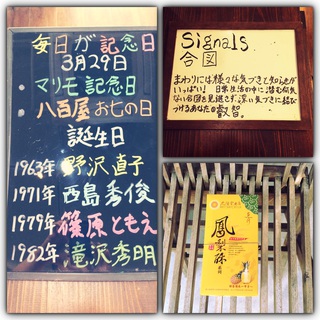 毎日が記念日
3月29日
マリモ記念日
八百屋お七の日
誕生日
1963年 野沢直子
1971年 西島秀俊
1979年 篠原ともえ
1982年 滝沢秀明
Signals
合図
まわりには様々な気づきと知恵が
いっぱい! 日常生活の中に潜む何気
ない合図を見逃さず、深い気づきに結び
つけるあなたの叡智。
鳳梨酥